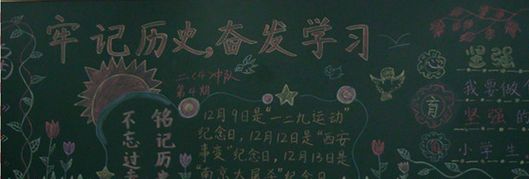 牢记历史,奋发学习
二(4)中队
第4期
铭记历史
不忘过去
12月9日是“一二九运动”
纪念日,12月12日是“西安
事变”纪念日,12月13日是
“南京大屠杀”纪念日
坚强
我要做
育 坚强的
小学生